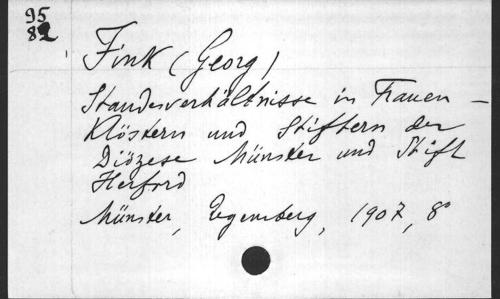 95
82
Fink (Georg)
Standesverhältnisse in Frauen-
Klöstern und Stiftern der
Diözese Münster und Stift
Herford
Münster, Regensberg, 1907, 8°